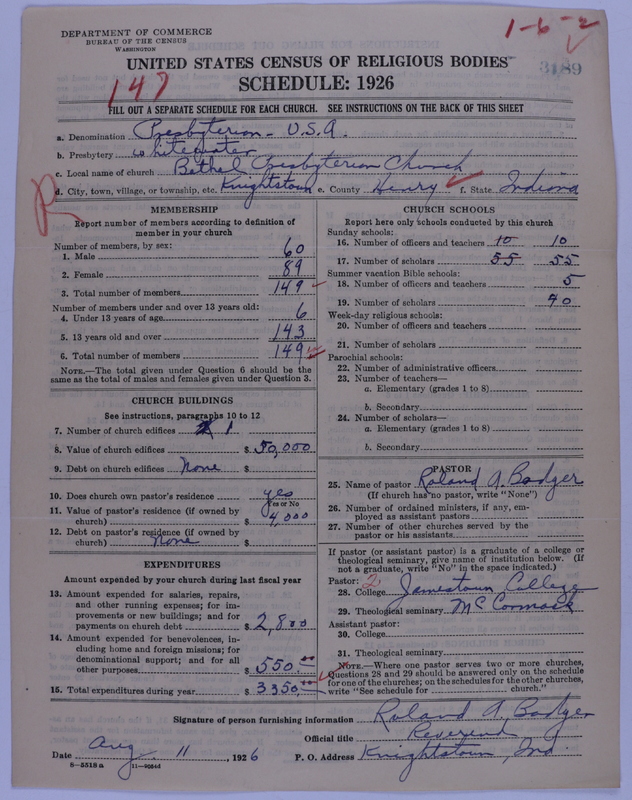 DEPARTMENT OF COMMERCE
BUREAU OF THE CENSUS
WASHINGTON
1-6-2
UNITED STATES CENSUS OF RELIGIOUS BODIES
3189
SCHEDULE: 1926
147
FILL OUT A SEPARATE SCHEDULE FOR EACH CHURCH. SEE INSTRUCTIONS ON THE BACK OF THIS SHEET
a. Denomination Presbyterian - U.S.A.
b. Presbytery Whitewater
c. Local name of church Bethel Presbyterian Church
d. City, town, village, or township, etc. Knightstown e. County Henry f. State Indiana
R
MEMBERSHIP
Report number of members according to definition of
member in your church
Number of members, by sex:
1. Male 60
2. Female 89
3. Total number of members 149
Number of members under and over 13 years old:
4. Under 13 years of age 6
5. 13 years old and over 143
6. Total number of members 149
NOTE.—The total given under Question 6 should be the
same as the total of males and females given under Question 3.
CHURCH BUILDINGS
See instructions, paragraphs 10 to 12
7. Number of church edifices 1
8. Value of church edifices $ 50,000
9. Debt on church edifices None $
10. Does church own pastor's residence yes
Yes or No
11. Value of pastor's residence (if owned by
church) $ 4,000
12. Debt on pastor's residence (if owned by
church) None $
EXPENDITURES
Amount expended by your church during last fiscal year
13. Amount expended for salaries, repairs,
and other running expenses; for im-
provements or new buildings; and for
payments on church debt $ 2,800
14. Amount expended for benevolences, in-
cluding home and foreign missions; for
denominational support; and for all
other purposes $ 550.00
15. Total expenditures during year $ 3350.00
CHURCH SCHOOLS
Report here only schools conducted by this church
Sunday schools:
16. Number of officers and teachers 10 10
17. Number of scholars 55 55
Summer vacation Bible schools:
18. Number of officers and teachers 5
19. Number of scholars 90
Week-day religious schools:
20. Number of officers and teachers
21. Number of scholars
Parochial schools:
22. Number of administrative officers
23. Number of teachers—
a. Elementary (grades 1 to 8)
b. Secondary
24. Number of scholars—
a. Elementary (grades 1 to 8)
b. Secondary
PASTOR
25. Name of pastor Roland A. Badger
(If church has no pastor, write "None")
26. Number of ordained ministers, if any, em-
ployed as assistant pastors
27. Number of other churches served by the
pastor or his assistants
If pastor (or assistant pastor) is a graduate of a college or
theological seminary, give name of institution below. (If
not a graduate, write "No" in the space indicated.)
Pastor: 2
28. College Jamestown College
29. Theological seminary McCormack
Assistant pastor:
30. College
31. Theological seminary
NOTE.—Where one pastor serves two or more churches,
Questions 28 and 29 should be answered only on the schedule
for one of the churches; on the schedules for the other churches,
write "See schedule for church."
Signature of person furnishing information Roland A. Badger
Official title Reverend
Date Aug. 11, 1926 P. O. Address Knightstown, Ind.
8-5518a 11-9084d